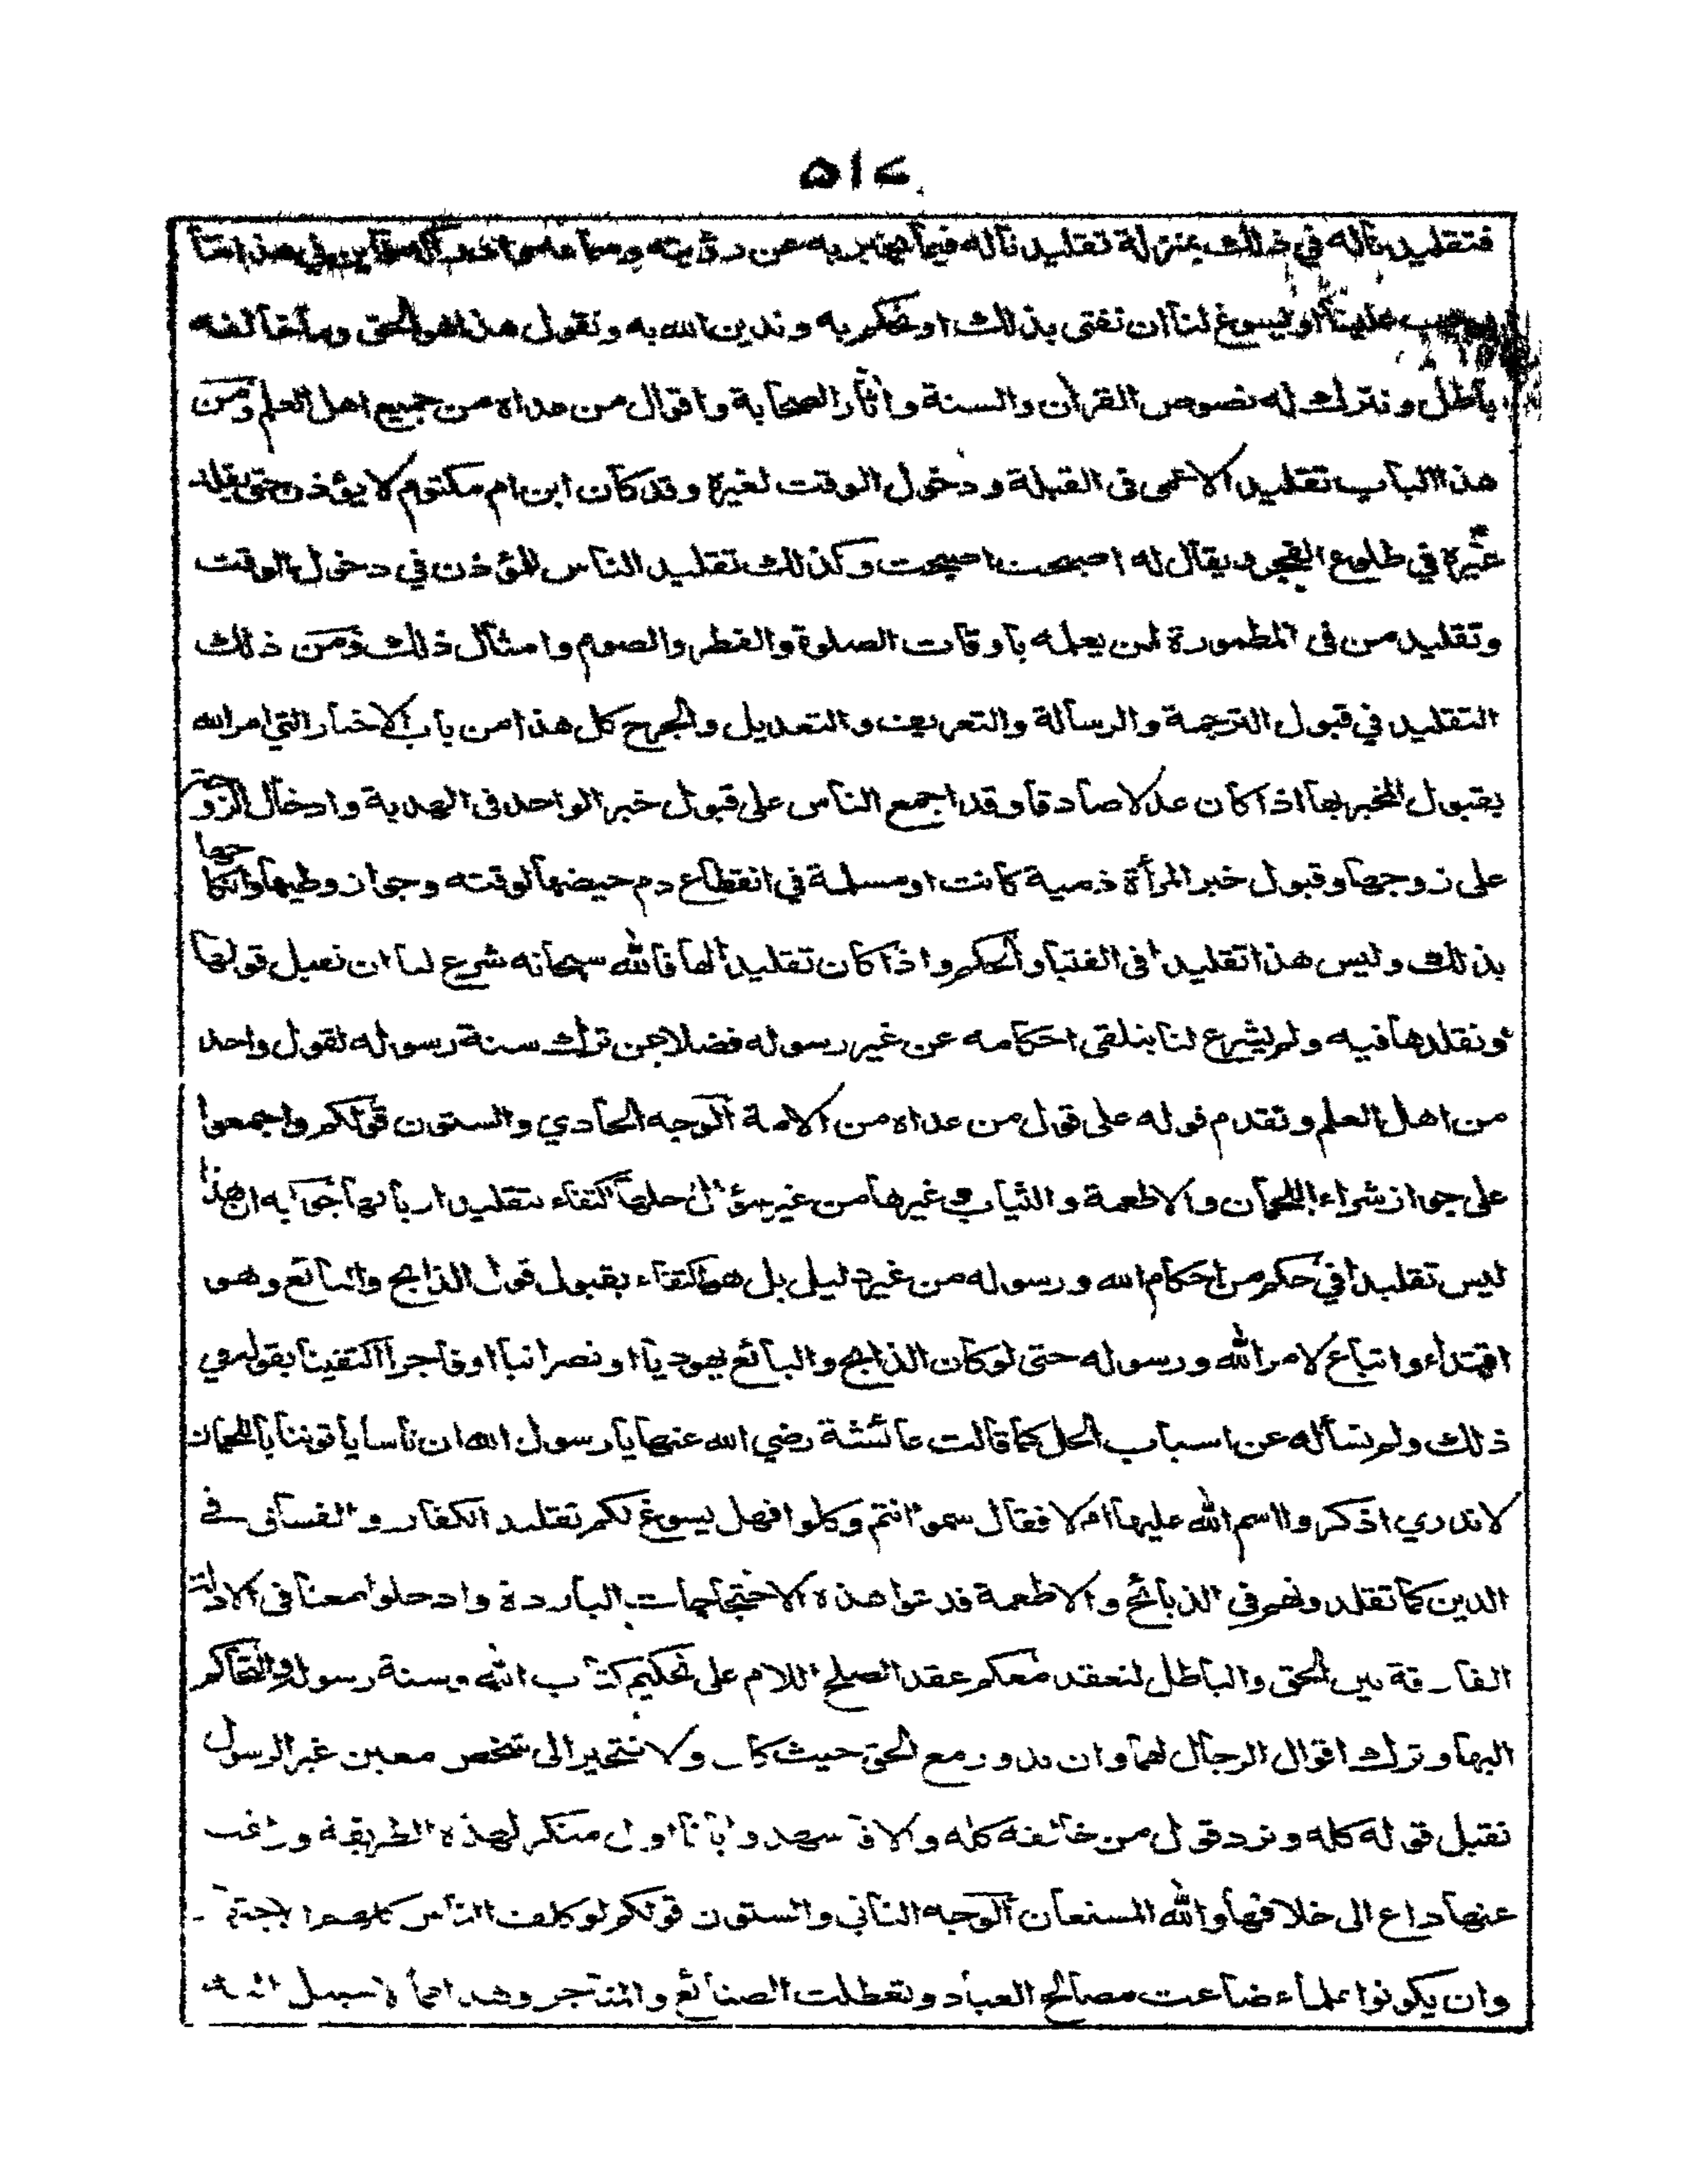 ۵۱۷
فتقليدنا له في ذلك بمنزلة تقليدنا له فيما يخبر به عن رؤيته و في هذا ما
علينا او يسوغ لنا ان نفتي بذلك او نحكم به وندين الله به ونقول هذا هو الحق وما خالفه
باطل ونترك له نصوص القرآن والسنة واثار الصحابة واقوال من عداه من جميع اهل العلم ومن
هذا الباب تقليد الاعمى فى القبلة ودخول الوقت لغيره وقد كان ابن ام مكتوم لا يؤذن حتى يقلد
غيره في طلوع الفجر ويقال له اصبحت اصبحت وكذلك تقليد الناس للمؤذن في دخول الوقت
وتقليد من فى المطمورة لمن يعلمه باوقات الصلوة والفطر والصوم وامثال ذلك ومن ذلك
التقليد في قبول الترجمة والرسالة والتعريف والتعديل والجرح كل هذا من باب الاخبار التي امر الله
بقبول المخبر بها اذا كان عدلا صادقا وقد اجمع الناس على قبول خبر الواحد فى الهدية وادخال الزوجة
على زوجها وقبول خبر المرأة ذمية كانت او مسلمة في انقطاع دم حيضها لوقته وجواز وطيها وانكاحها
بذلك وليس هذا تقليدا فى الفتيا والحكم واذا كان تقليدا لها فالله سبحانه شرع لنا ان نقبل قولها
ونقلدها فيه ولم يشرع لنا نتلقى احكامه عن غير رسوله فضلا عن ترك سنة رسوله لقول واحد
من اهل العلم وتقدم قوله على قول من عداه من الامة الوجه الحادي والستون قولكم واجمعوا
على جواز شراء اللحمان والاطعمة والثياب وغيرها من غير سؤال حلها اكتفاء بتقليد اربابها جوابه ان هذا
ليس تقليدا في حكم من احكام الله ورسوله من غير دليل بل هو اكتفاء بقبول قول الذابح والبائع وهو
اقتداء واتباع لامر الله ورسوله حتى لو كان الذابح والبائع يهوديا او نصرانيا او فاجرا اكتفينا بقوله في
ذلك ولم نسأله عن اسباب الحل كما قالت عائشة رضي الله عنها يا رسول الله ان ناسا يأتوننا باللحمان
لا ندري اذكروا اسم الله عليها ام لا فقال سموا انتم وكلوا فهل يسوغ لكم تقليد الكفار والفساق في
الدين كما تقلدونهم في الذبائح والاطعمة فدعوا هذه الاحتجاجات الباردة وادخلوا معنا فى الادلة
الفارقة بين الحق والباطل لنعقد معكم عقد الصلح اللازم على تحكيم كتاب الله وسنة رسوله والتحاكم
اليها وترك اقوال الرجال لهما وان ندور مع الحق حيث كان ولا نتحيز الى شخص معين غير الرسول
نقبل قوله كله ونرد قول من خالفه كله والا فاشهدوا بانا اول منكر لهذه الطريقة وراغب
عنها داع الى خلافها والله المستعان الوجه الثاني والستون قولكم لو كلف الناس كلهم الاجتهاد
وان يكونوا علماء ضاعت مصالح العباد وتعطلت الصنائع والمتاجر وهذا مما لا سبيل اليه